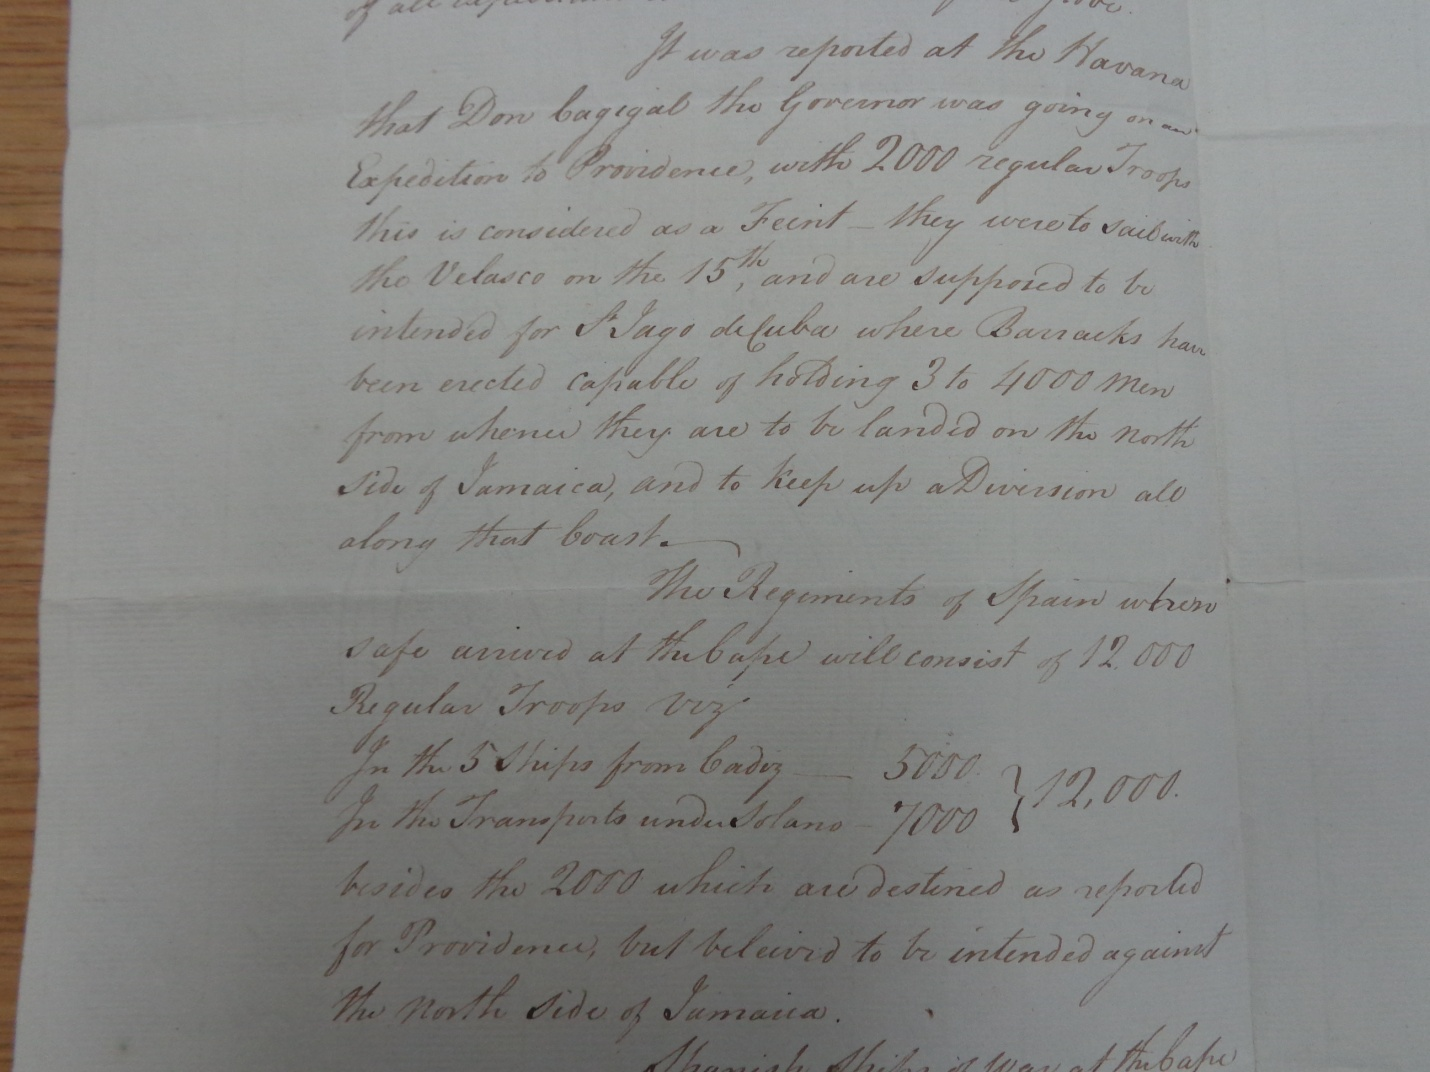 of all
It was reported at the Havana
that Don Cagigal the Governor was going on an
Expedition to Providence, with 2000 regular Troops
this is considered as a Feint – they were to sail with
the Velasco on the 15th, and are supposed to be
intended for St Jago de Cuba where Barracks have
been erected capable of holding 3 to 4000 Men
from whence they are to be landed on the North
side of Jamaica, and to keep up a Diversion all
along that Coast.
The Regiments of Spain when
safe arrived at the Cape will consist of 12.000
Regular Troops Viz
In the 5 Ships from Cadiz — 5000
In the Transports under Solano – 7000 } 12,000.
besides the 2000 which are destined as reported
for Providence, but beleived to be intended against
the North side of Jamaica.
Spanish Ships of War at the Cape